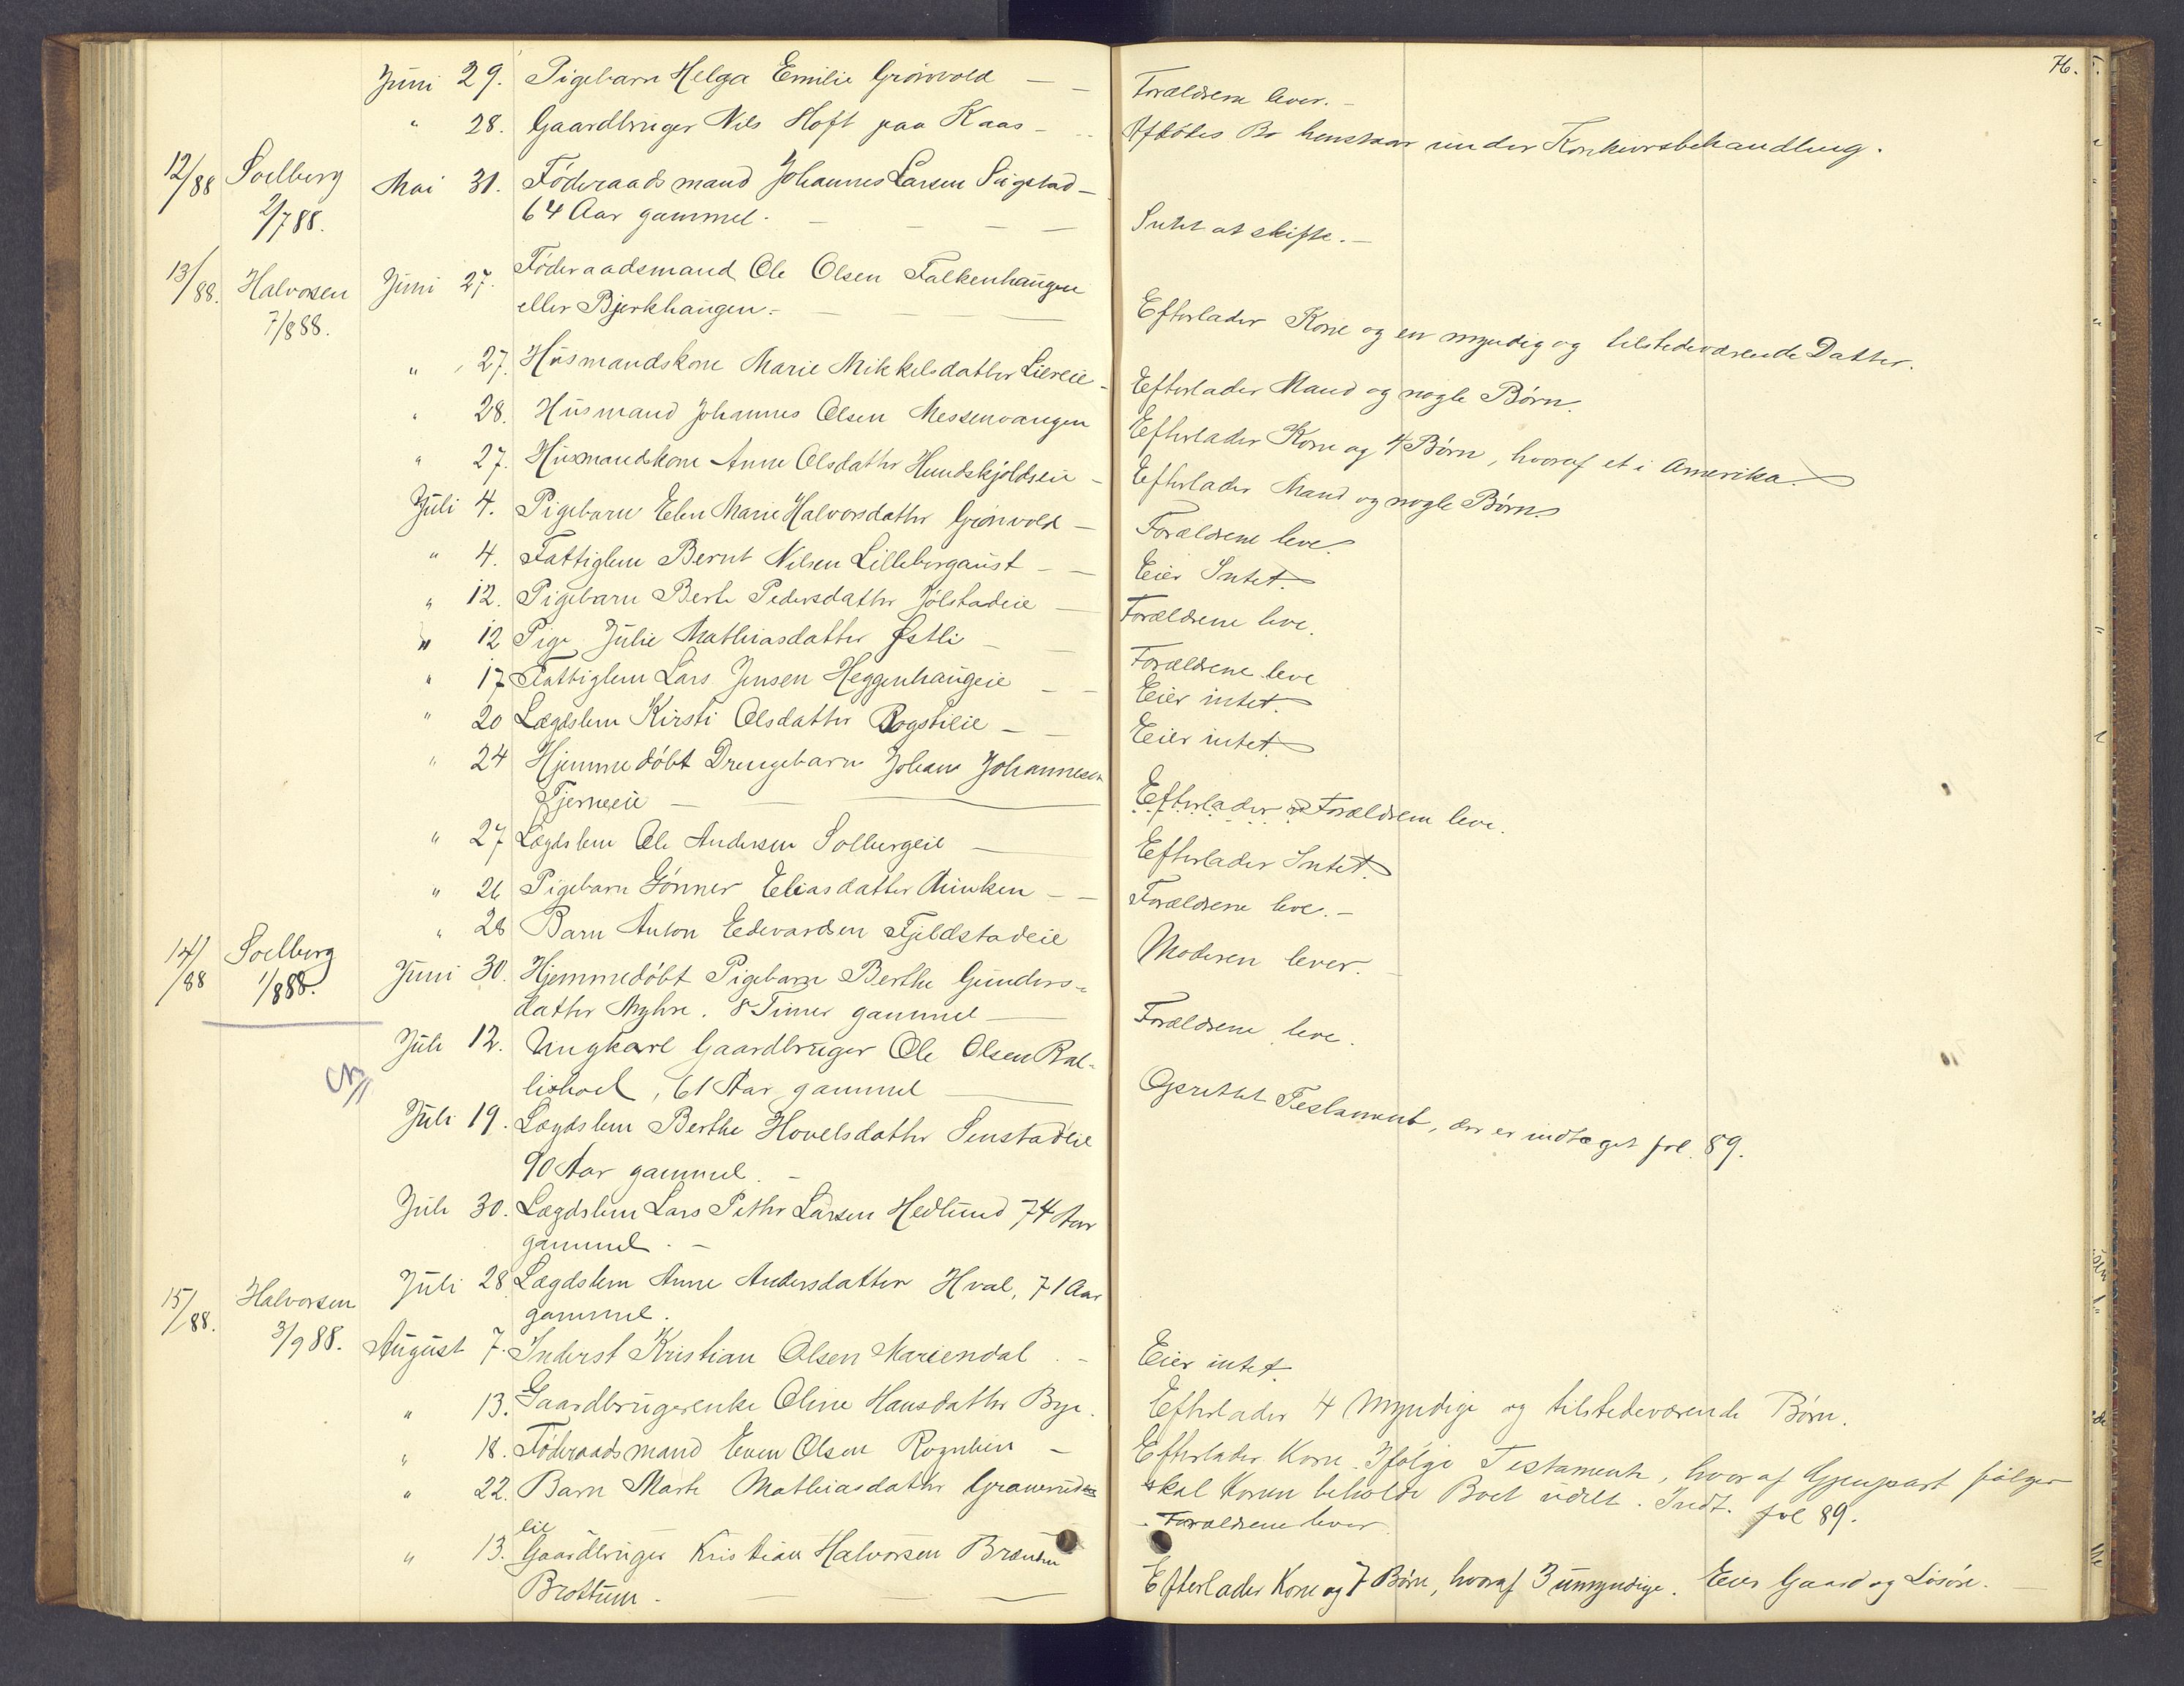 76.
Juni 29. Pigebarn Helga Emilie Grönvold — — Forældrene lever. —
" 28. Gaardbruger Nils Hoft paa Kaas — Afdödes Bo henstaar under Konkursbehandling.
12/88 Soelberg Mai 31. Föderaadsmand Johannes Larsen Sugstad —
2/7 88. 64 Aar gammel. — — — — Intet at skifte. —
13/88. Halvorsen Juni 27. Föderaadsmand Ole Olsen Falkenhaugen
7/8 88. eller Bjerkhaugen. — — — Efterlader Kone og en myndig og tilstedeværende Datter.
" 27. Husmandskone Marie Mikkelsdatter Liereie — Efterlader Mand og nogle Börn.
" 28. Husmand Johannes Olsen Messenvangen Efterlader Kone og 4 Börn, hvoraf et i Amerika.
" 27. Husmandskone Anne Olsdatter Hundskjöldseie — Efterlader Mand og nogle Börn.
Juli 4. Pigebarn Elen Marie Halvorsdatter Grönvold — Forældrene leve.
" 4. Fattiglem Bernt Nilsen Lilleborgaust — — Eier Intet.
" 12. Pigebarn Berte Pedersdatter Jölstadeie — Forældrene leve.
" 12 Pige Julie Mathiasdatter Östli — Forældrene leve
" 17 Fattiglem Lars Jensen Heggenhaugeie — — Eier intet.
" 20 Lægdslem Kirsti Olsdatter Rogstieie — — Eier intet.
" 24 Hjemmedöbt Drengebarn Johans Johannesen
Tjerneeie — — Efterlader Forældrene leve.
" 27 Lægdslem Ole Andersen Solbergeie — Efterlader Intet.
" 26 Pigebarn Gönner Eliasdatter — — Forældrene leve. —
" 28 Barn Anton Edevardsen Fjeldstadeie Moderen lever. —
14/88 Soelberg Juni 30. Hjemmedöbt Pigebarn Berthe Gunders-
1/8 88. datter Myhre. 8 Timer gammel — Forældrene leve.
Juli 12. Ungkarl Gaardbruger Ole Olsen Ral-
lishoel, 61 Aar gammel — Oprettet Testament, der er indtaget fol. 89.
Juli 19. Lægdslem Berthe Hovelsdatter Senstadeie
90 Aar gammel. —
Juli 30. Lægdslem Lars Petter Larsen Hedlund 74 Aar
gammel. —
Juli 28. Lægdslem Anne Andersdatter Hval, 71 Aar
gammel.
15/88. Halvorsen
3/9 88. August 7. Inderst Kristian Olsen Mariendal. — Eier intet.
" 13. Gaardbrugerenke Oline Hansdatter Bye. Efterlader 4 Myndige og tilstedeværende Börn.
" 18. Föderaadsmand Even Olsen Rognlien — Efterlader Kone. Ifölge Testamente, hvoraf Gjenpart fölger
skal Konen beholde Boet udelt. Indt. fol 89.
" 22. Barn Marte Mathiasdatter Graverud
eie — Forældrene lever.
" 13. Gaardbruger Kristian Halvorsen Brænden
Brottum. — — — Efterlader Kone og 7 Börn, hvoraf 3 umyndige. Eier Gaard og Lösöre.